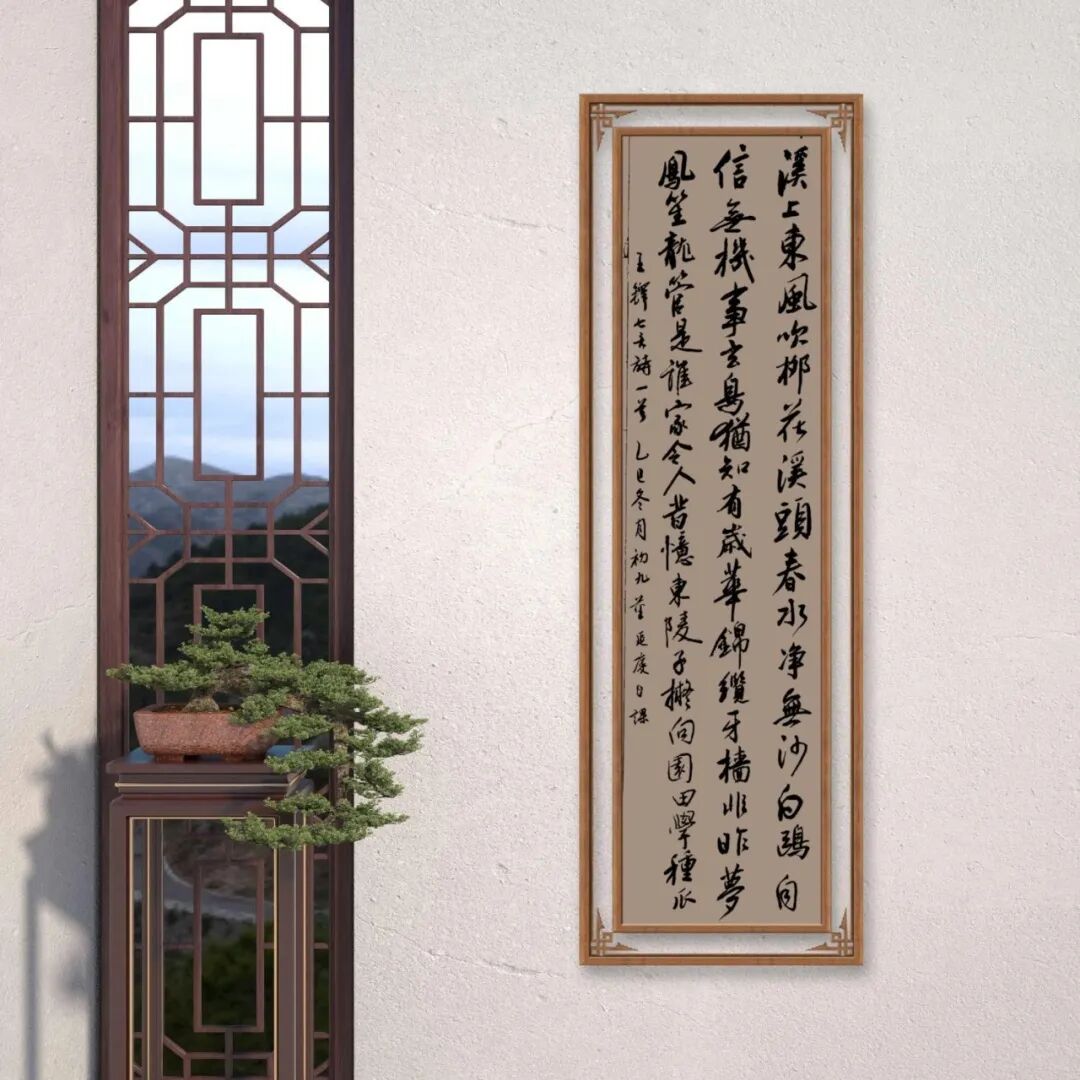 溪上東風吹柳花溪頭春水净無沙白鷗自
信無機事玄鳥猶知有歲華錦纜牙檣非昨夢
鳳笙龍管是誰家令人昔憶東陵子擬向園田學種瓜
王鐸七言詩一首 乙巳冬月初九 董延慶日課